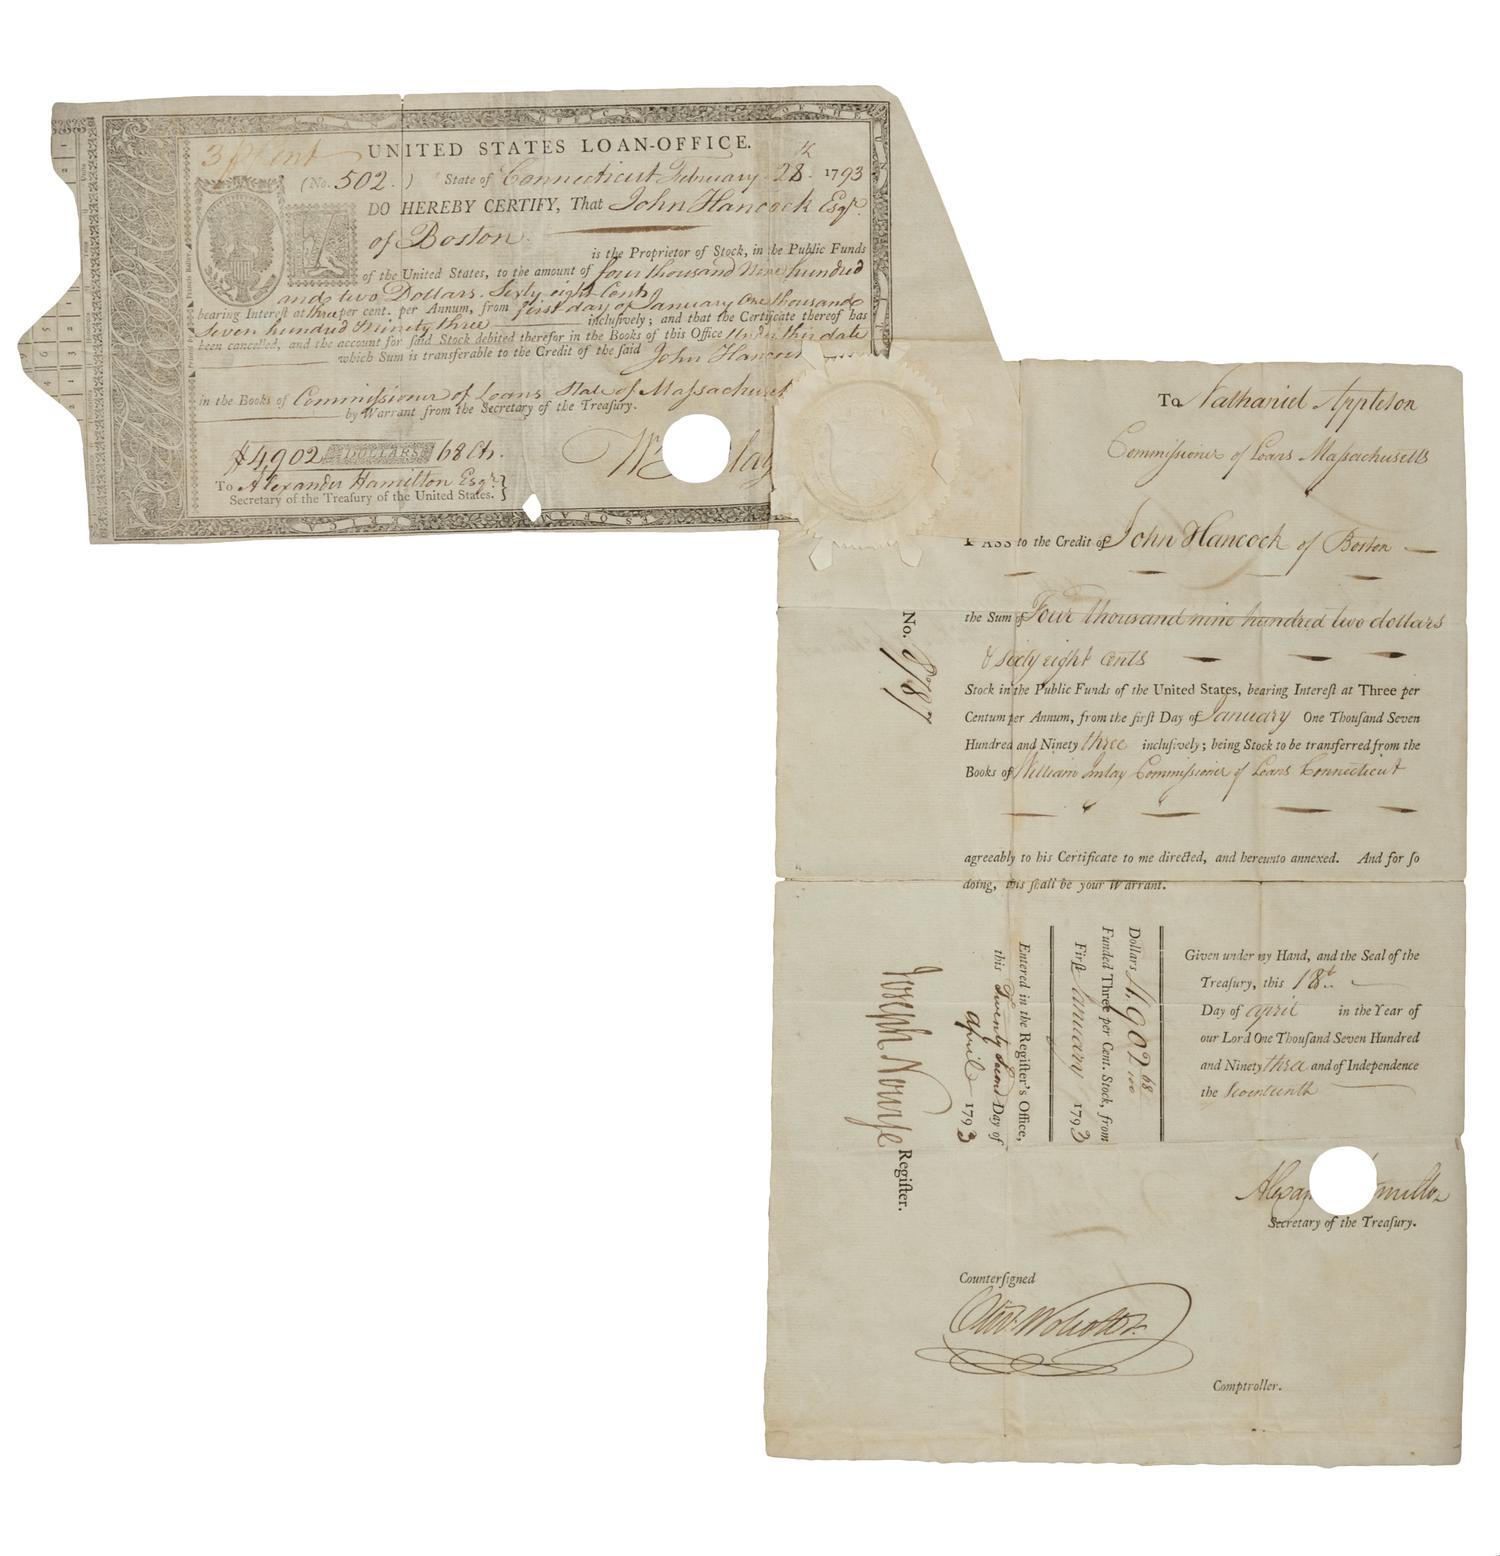 3 pCent
UNITED STATES LOAN-OFFICE.
(No. 502.) State of Connecticut February 28. 1793
I DO HEREBY CERTIFY, That John Hancock Esqr.
of Boston
is the Proprietor of Stock, in the Public Funds
of the United States, to the amount of four thousand Nine hundred
and two Dollars. Sixty eight Cents
bearing Intereſt at three per cent. per Annum, from first day of January One thousand
Seven hundred Ninety three incluſively; and that the Certificate thereof has
been cancelled, and the account for ſaid Stock debited therefor in the Books of this Office Under this date
which Sum is transferable to the Credit of the ſaid John Hancock
in the Books of Commissioner of Loans State of Massachuset
by Warrant from the Secretary of the Treaſury.
$4902 DOLLARS 68 Cts.
To Alexander Hamilton Esqr.
Secretary of the Treaſury of the United States.
Wm lay
To Nathaniel Appleton
Commissioner of Loans Massachusetts
PASS to the Credit of John Hancock of Boston
the Sum of Four thousand nine hundred two dollars
& sixty eight cents
Stock in the Public Funds of the United States, bearing Intereſt at Three per
Centum per Annum, from the firſt Day of January One Thouſand Seven
Hundred and Ninety three incluſively; being Stock to be transferred from the
Books of William Imlay Commissioner of Loans Connecticut
agreeably to his Certificate to me directed, and hereunto annexed. And for ſo
doing, this ſhall be your Warrant.
Given under my Hand, and the Seal of the
Treaſury, this 18th
Day of april in the Year of
our Lord One Thouſand Seven Hundred
and Ninety three and of Independence
the Seventeenth
Alexa milton
Secretary of the Treaſury.
Counterſigned
Olivr. Wolcott Jr.
Comptroller.
No. 8787
Dollars 4,902 68/100
Funded Three per Cent. Stock, from
Firſt January 1793
Entered in the Regiſter's Office,
this Twenty Second Day of
april 1793
Joseph Nourse Regiſter.